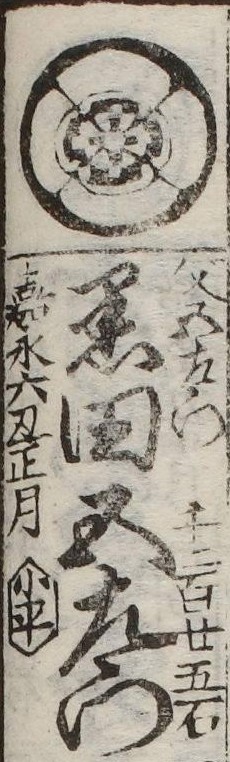 父五左衛門
千二百廿五石
黒田五左衛門
嘉永六丑正月
小平